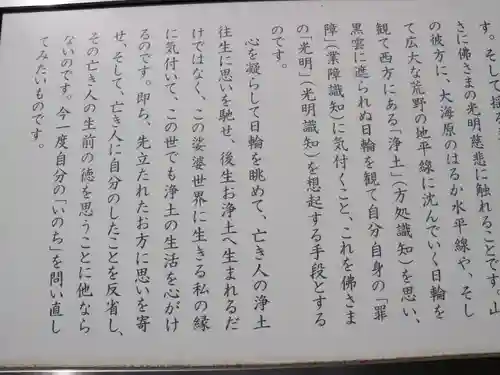 す。そして揺る
さに佛さまの光明慈悲に触れることです。山
の彼方に、大海原のはるか水平線や、そし
て広大な荒野の地平線に沈んでいく日輪を
観て西方にある「浄土」(方処識知)を思い、
黒雲に遮られぬ日輪を観て自分自身の「罪
障」(業障識知)に気付くこと、これを佛さま
の「光明」(光明識知)を想起する手段とする
のです。
心を凝らして日輪を眺めて、亡き人の浄土
往生に思いを馳せ、後生お浄土へ生まれるだ
けではなく、この娑婆世界に生きる私の縁
に気付いて、この世でも浄土の生活を心がけ
るのです。即ち、先立たれたお方に思いを寄
せ、そして、亡き人に自分のしたことを反省し、
その亡き人の生前の徳を思うことに他なら
ないのです。今一度自分の「いのち」を問い直し
てみたいものです。